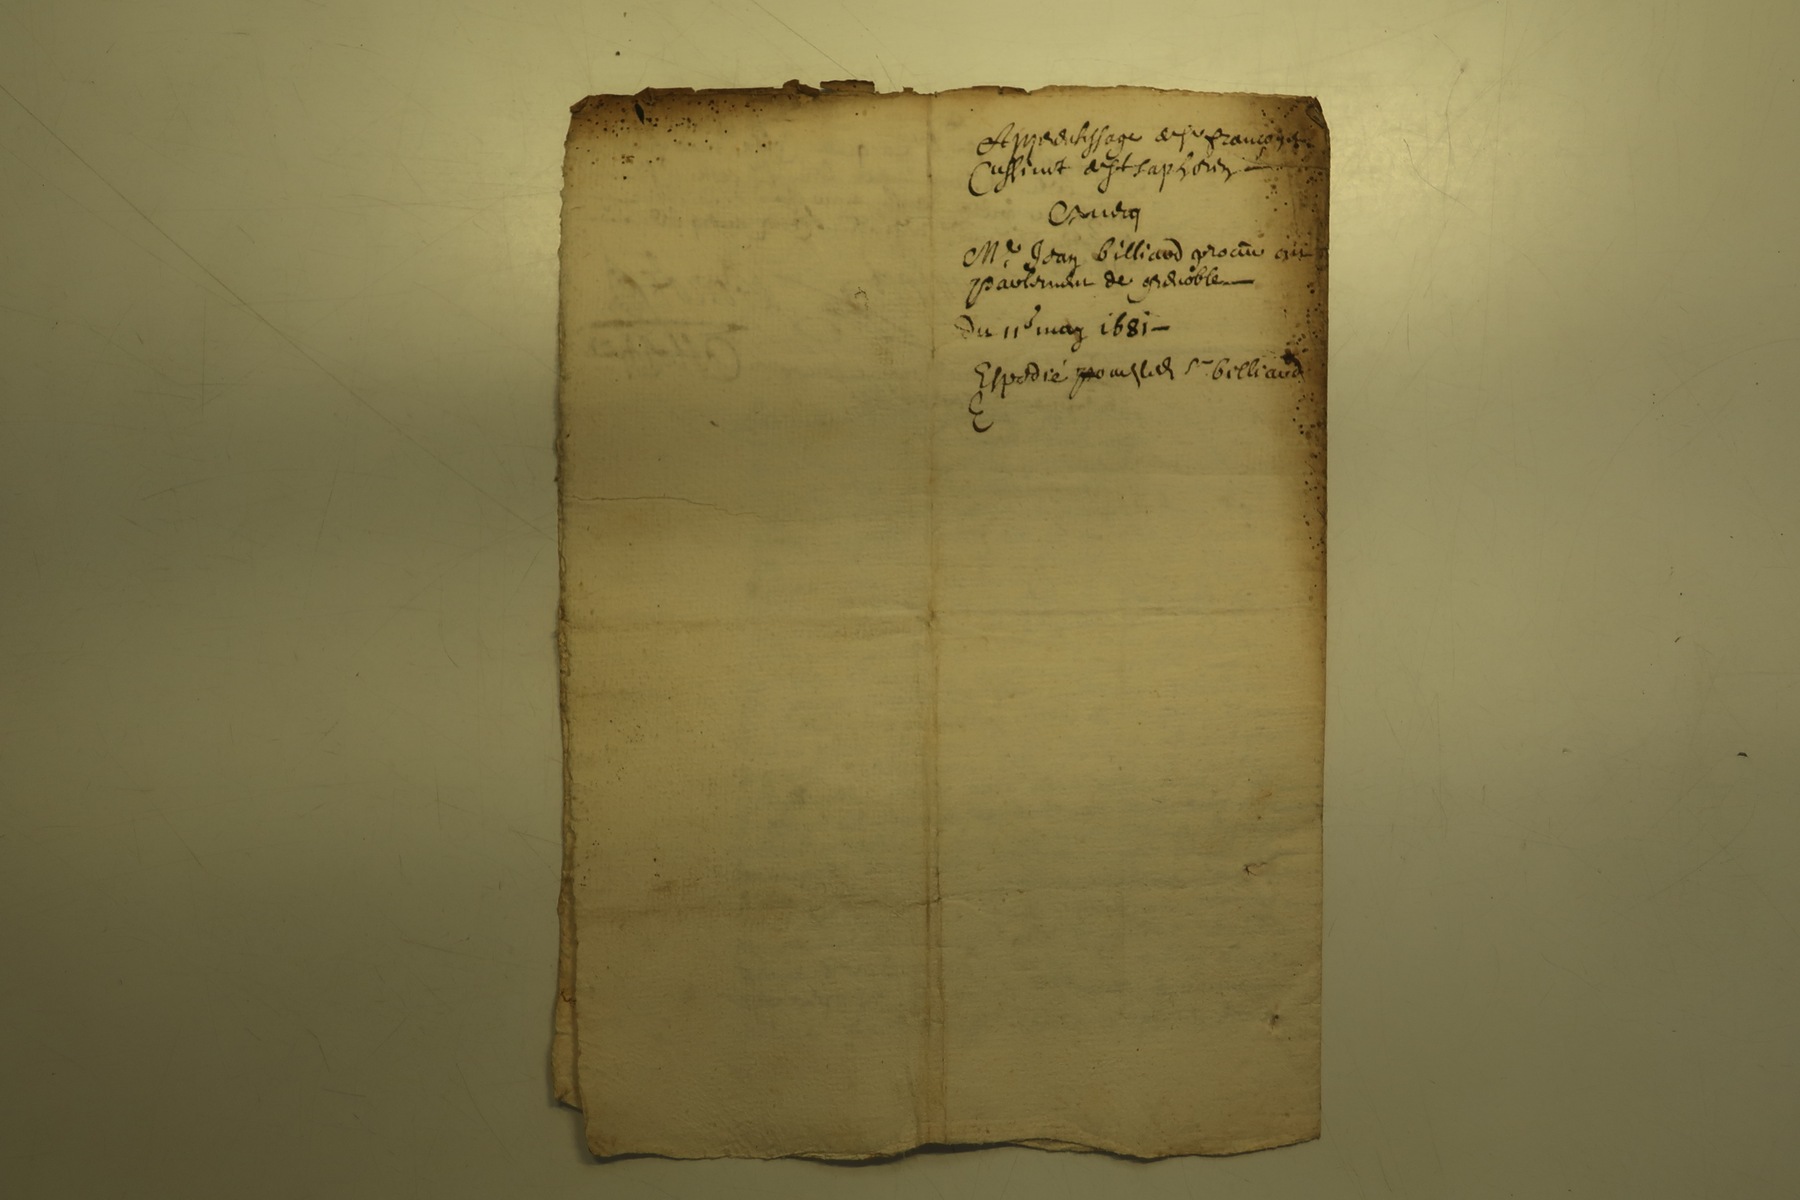 Apprentissage de sr françois
Cussinet de st saphorin
Avecq
Mre Jean billiard procur au
parlement de grenoble
Du 11e may 1681
Espedié pour led sr billiard